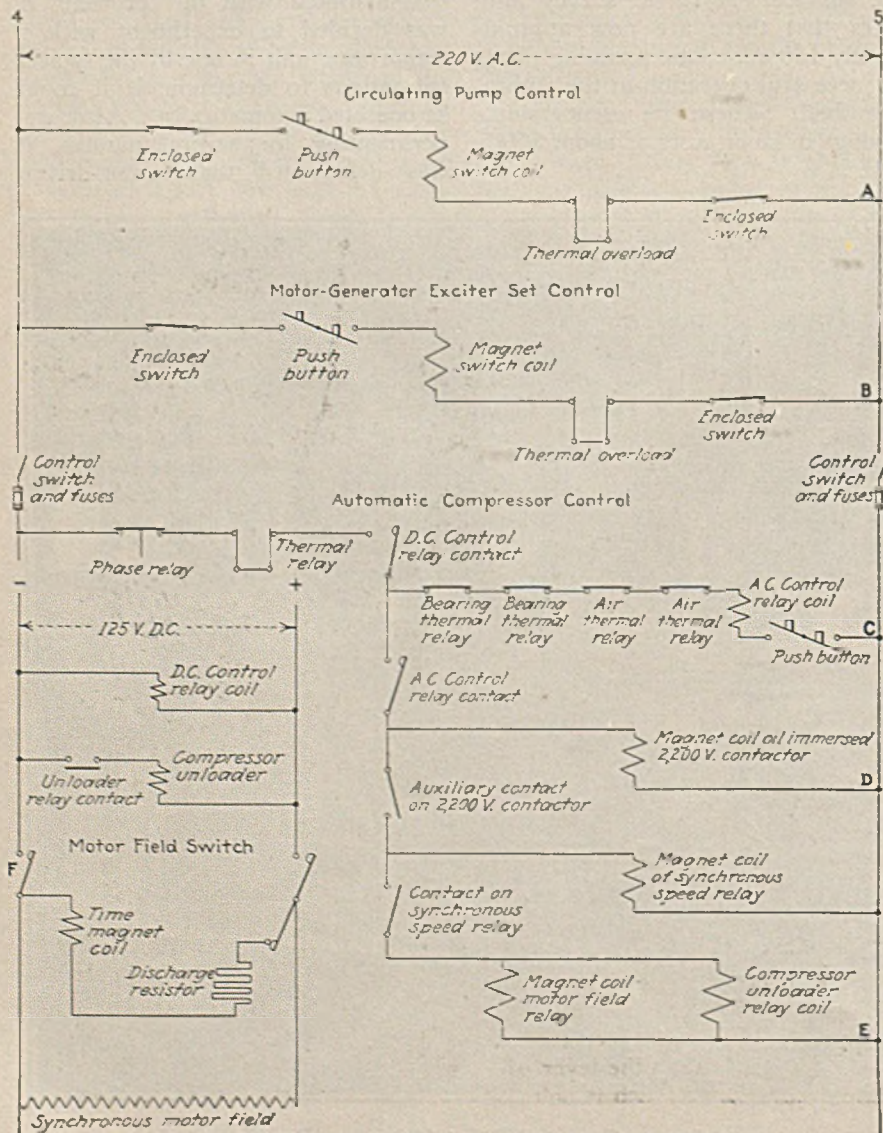 4
5
220 V. A.C.
Circulating Pump Control
Enclosed
switch
Push
button
Magnet
switch coil
A
Enclosed
switch
Thermal overload
Motor-Generator Exciter Set Control
Enclosed
switch
Push
button
Magnet
switch coil
B
Enclosed
switch
Thermal overload
Control
switch
and fuses
Control
switch
and fuses
Automatic Compressor Control
Phase relay
Thermal
relay
D.C. Control
relay contact
–
+
Bearing
thermal
relay
Bearing
thermal
relay
Air
thermal
relay
Air
thermal
relay
A C Control
relay coil
C
Push button
125 V. D.C.
D.C. Control
relay coil
A C Control
relay contact
Magnet coil oil immersed
2,200 V. contactor
D
Unloader
relay contact
Compressor
unloader
Auxiliary contact
on 2,200 V. contactor
Motor Field Switch
F
Time
magnet
coil
Discharge
resistor
Magnet coil
of synchronous
speed relay
Contact on
synchronous
speed relay
Magnet coil
motor field
relay
Compressor
unloader
relay coil
E
Synchronous motor field